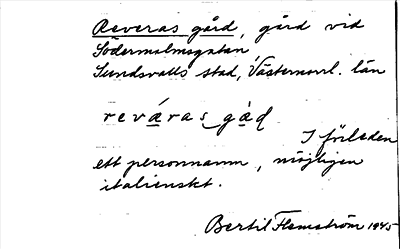 Reveras gård, gård vid
Södermalmsgatan,
Sundsvalls stad, Västernorrl. län
reváras gàd
I förleden
ett personnamn, möjligen
italienskt.
Bertil Flemström 1945